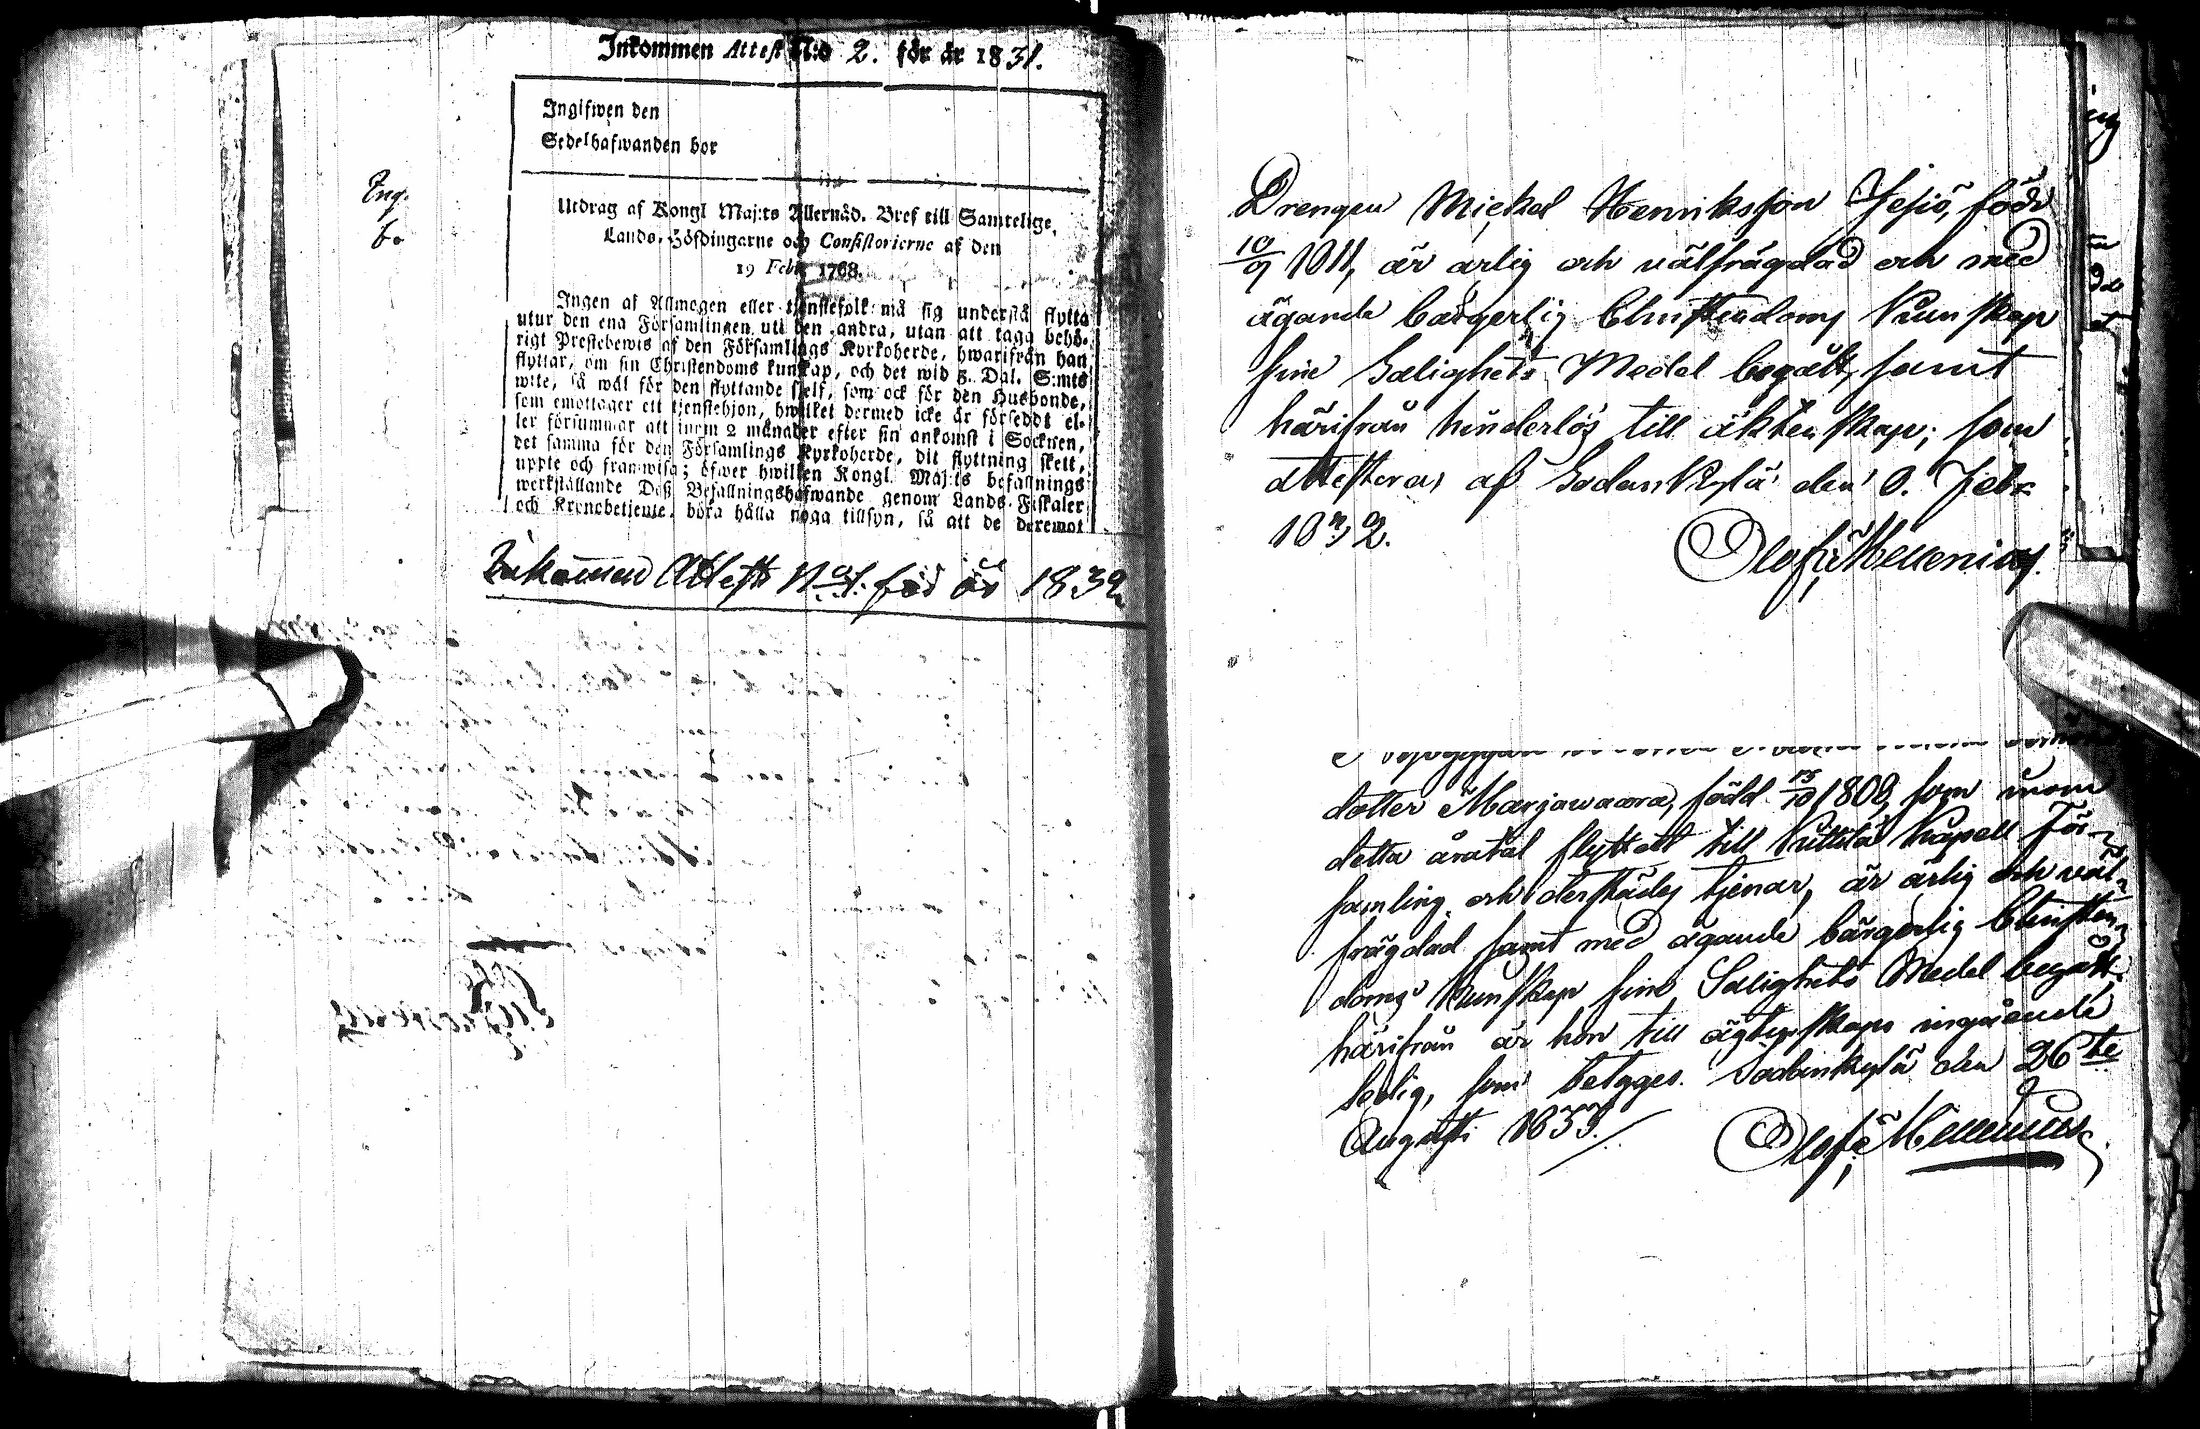 Inkommen Attest N:o 2. för år 1831.
Ingifwen den
Sedelhafwanden bor
Utdrag af Kongl Maj:ts Allernåd. Bref till Samtelige
Lands-Höfdingarne och Consistorierne af den
19 Febr. 1768.
Ingen af Allmogen eller tjenstefolk må sig understå flytta
utur den ena Församlingen uti den andra, utan att taga behö-
rigt Prestebewis af den Församlings Kyrkoherde, hwarifrån han
flyttar, om sin Christendoms kunskap, och det wid 5. Dal. S:mts
wite, så wäl för den flyttande sjelf, som ock för den Husbonde,
som emottager ett tjenstehjon, hwilket dermed icke är försedt el-
ler försummar att inom 2 månader efter sin ankomst i Socknen,
det samma för den Församlings Kyrkoherde, dit flyttning skett,
uppte och framwisa; öfwer hwilken Kongl. Maj:ts befallnings
werkställande Deß Befallningshafwande genom Lands-Fiskaler
och Kronobetjente, böra hålla noga tillsyn, så att de deremot
Ing.
b.
Inkommen Attest N:o 1. för år 1832
Drengen Mickel Henriksson Jesiö, född
10/9 1811, är ärlig och välfrägdad och med
ägande bärgerlig Christendoms Kunskap
sine Salighets Medel begått, samt
härifrån hinderlös till äktenskap; som
attesteras af Sodankylä den 8. Febr
1832.
Olof Mellenius.
dotter Marjawaara, född 15/10 1808, som inom
detta åratal flyttat till Kittilä Kapell För-
samling och derstädes tjenar, är ärlig och väl-
frägdad samt med ägande bärgerlig Christen-
doms Kunskap sine Salighets Medel begått
härifrån är hon till ägtenskaps ingående
ledig, som betyges. Sodankylä den 26te
Augusti 1833.
Olof Mellenius